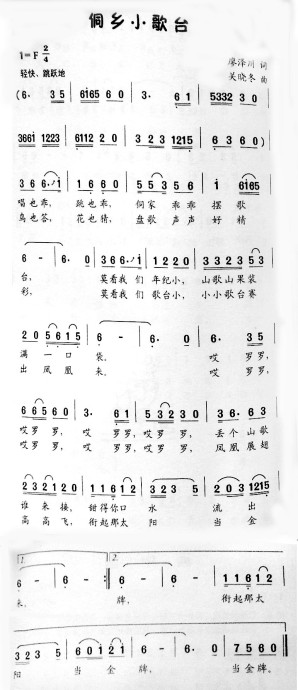 侗乡小歌台
1=F 2/4
轻快、跳跃地
廖泽川 词
吴晓冬 曲
(6. 3 5 | 6165 6 0 | 3. 6 1 | 5332 3 0 |
3661 1223 | 6112 2 0 | 3 2 3 1215 | 6 3 6 0) |
3 6 6. 1 | 1 6 6 0 | 5 5 3 5 6 | 1 6165 |
唱也乖, 跳也乖, 侗家 乖 乖 摆 歌
鸟也答, 花也猜, 盘歌 声 声 好 精
6 - | 6 0 | 3 6 6. 1 | 3 6 1 0 | 3 2 3 2 5 3 |
台, 莫看我 们 年纪小, 山歌 山果 装
彩, 莫看我 们 歌台小, 小小 歌台 赛
2 0 5 6 1 5 | 6 - | 6. 0 | 6. 3 5 |
满 一 口 袋。 哎 罗 罗,
出 凤 凰 来。 哎 罗 罗,
6 6 5 6 0 | 3. 6 1 | 5 3 2 3 0 | 3 6. 6 3 |
哎 罗 罗, 哎 罗 罗, 哎 罗 罗, 丢 个 山 歌
哎 罗 罗, 哎 罗 罗, 哎 罗 罗, 凤 凰 展 翅
2 3 2 1 2 0 | 1 1 6 1 2 | 3 2 3 5 | 2 0 3 1215 |
谁 来 接, 甜得你 口 水 流 出
高 高 飞, 衔起那 太 阳 当 金
1. 2.
6 - | 6 - :| 6 - | 6 - | 1 1 6 1 2 |
来。 牌, 衔起那 太
3 2 3 5 | 6 0 1 2 1 | 6 - | 0 0 | 7 5 6 0 ||
阳 当 金 牌, 当 金 牌。